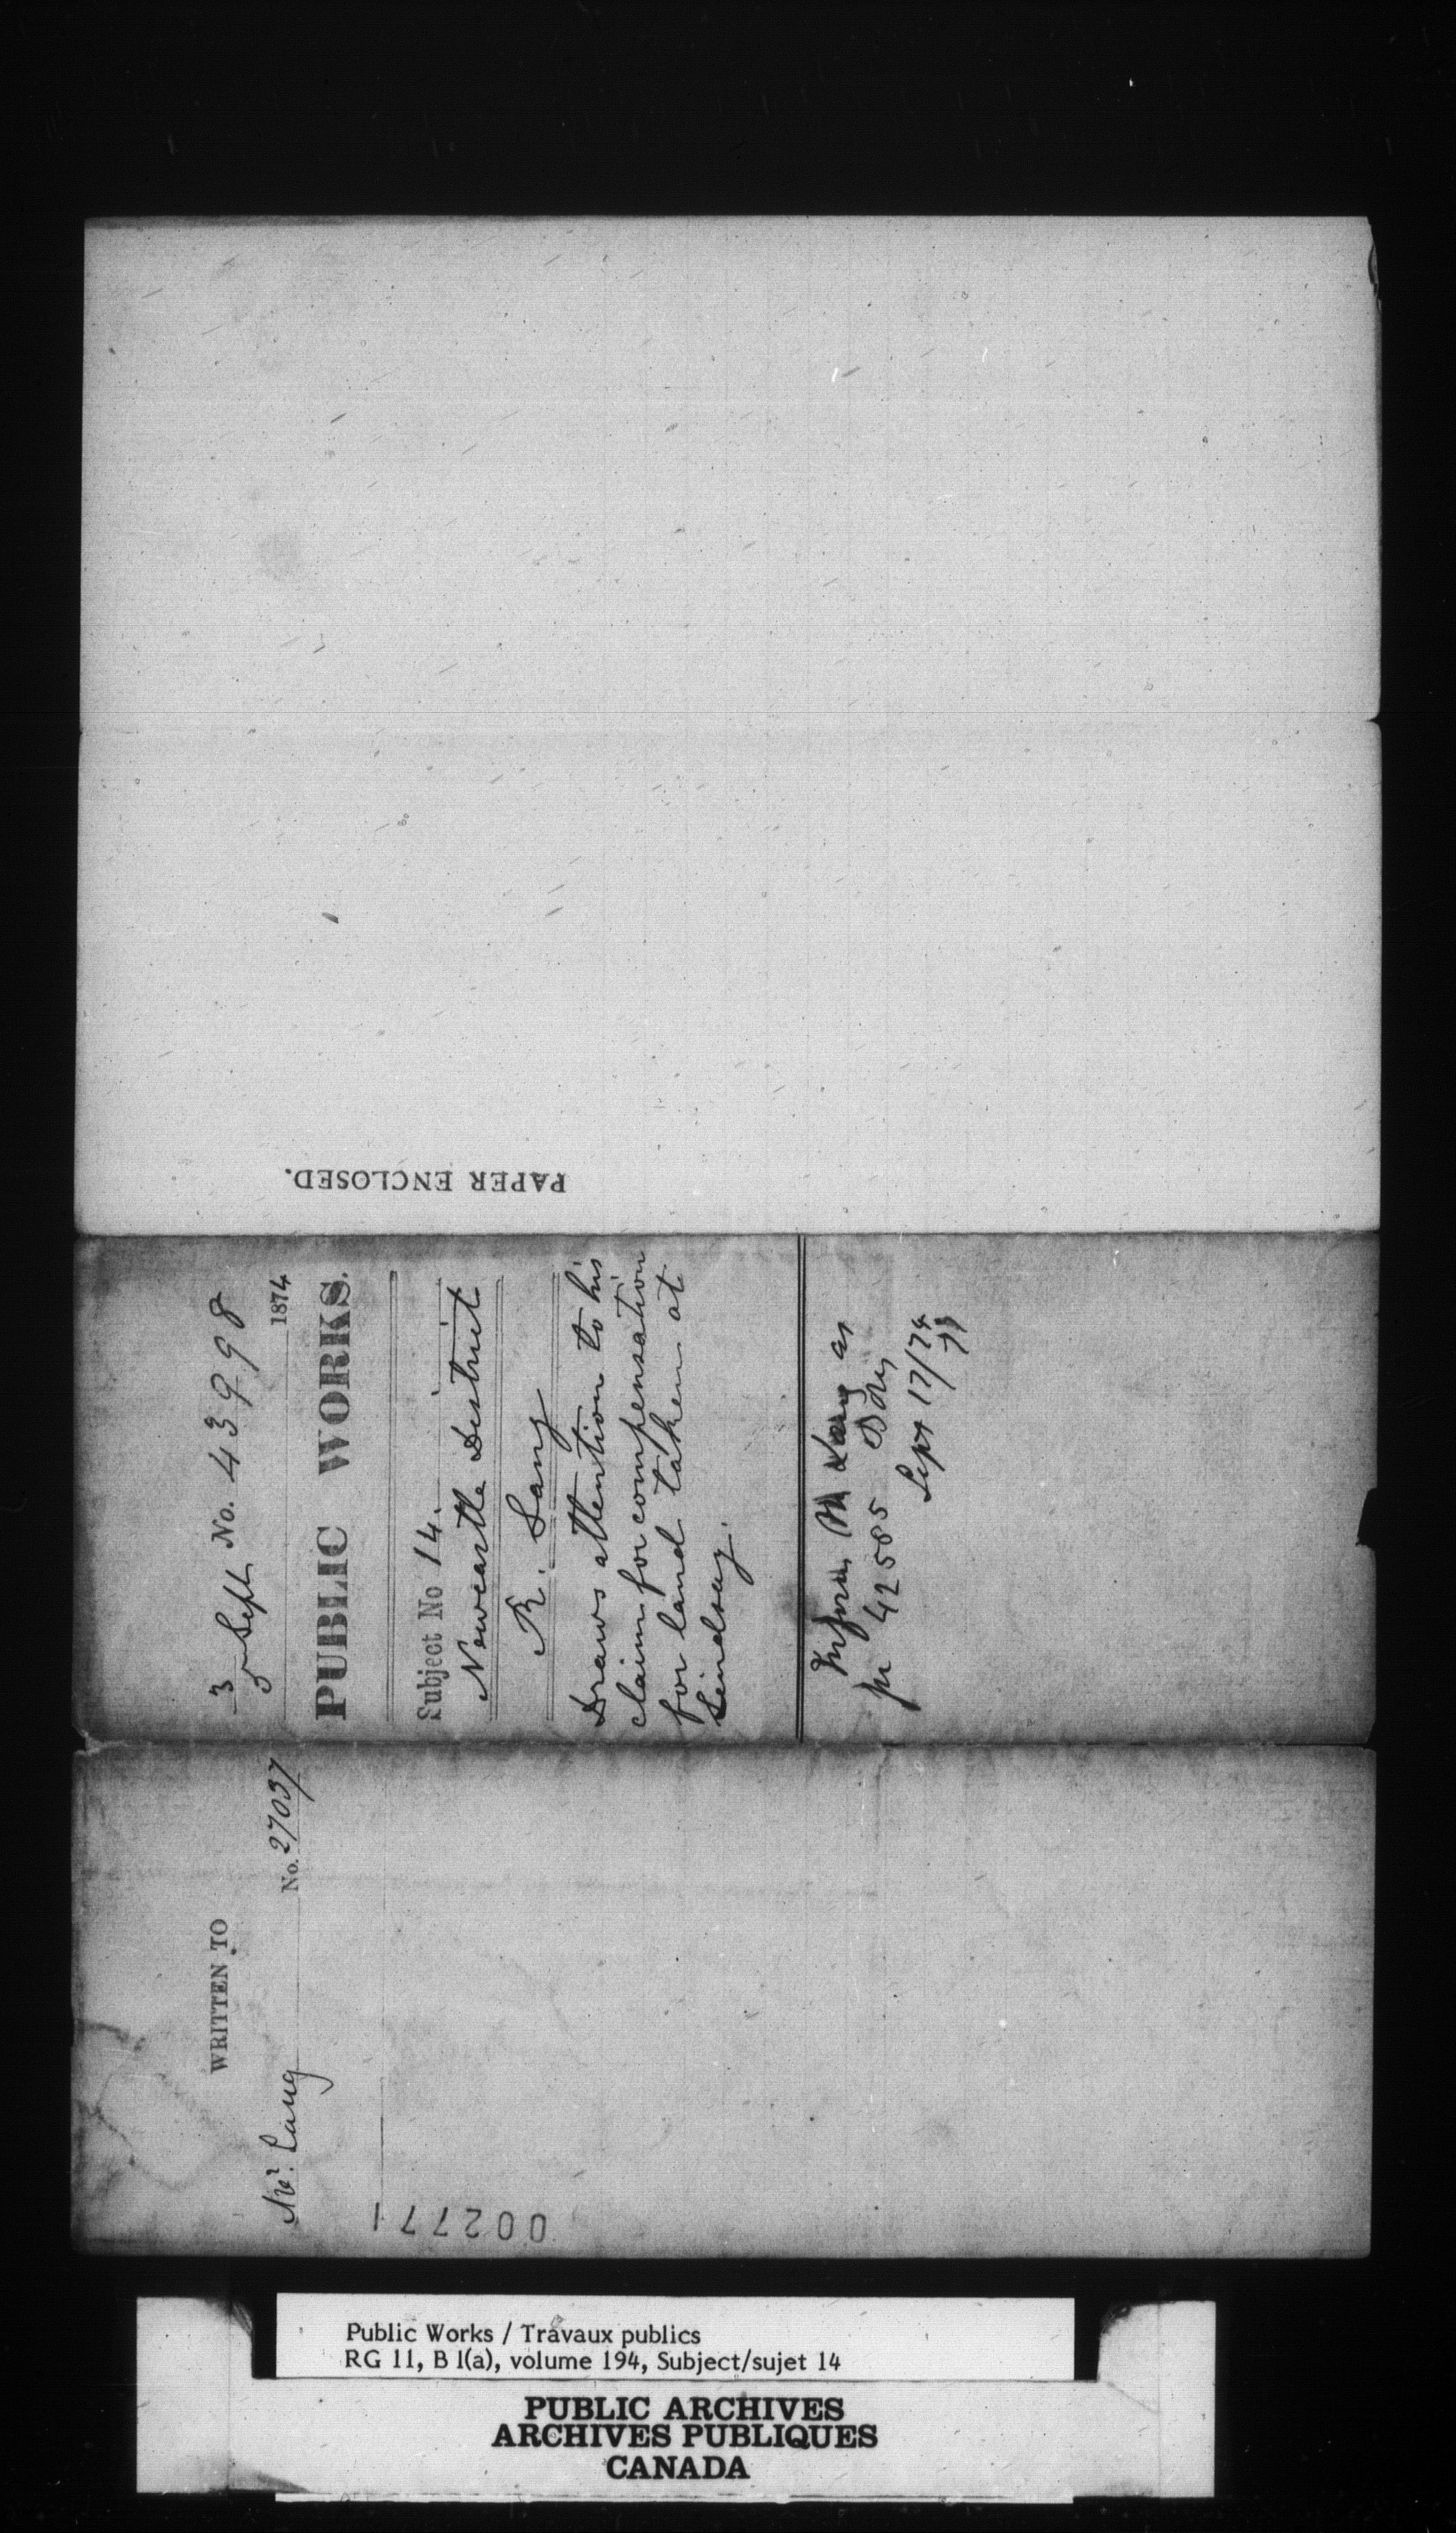 PAPER ENCLOSED.
3
5 Sept No. 43998
1874
PUBLIC WORKS.
Subject No 14.
Newcastle District
R. Lang
Draws attention to his
claim for compensation
for land taken at
Lindsay.
Inform Mr Lang as
pr 42585
Sept 17/74
WRITTEN TO
Mr. Lang No. 27037
002771
Public Works / Travaux publics
RG 11, B 1(a), volume 194, Subject/sujet 14
PUBLIC ARCHIVES
ARCHIVES PUBLIQUES
CANADA